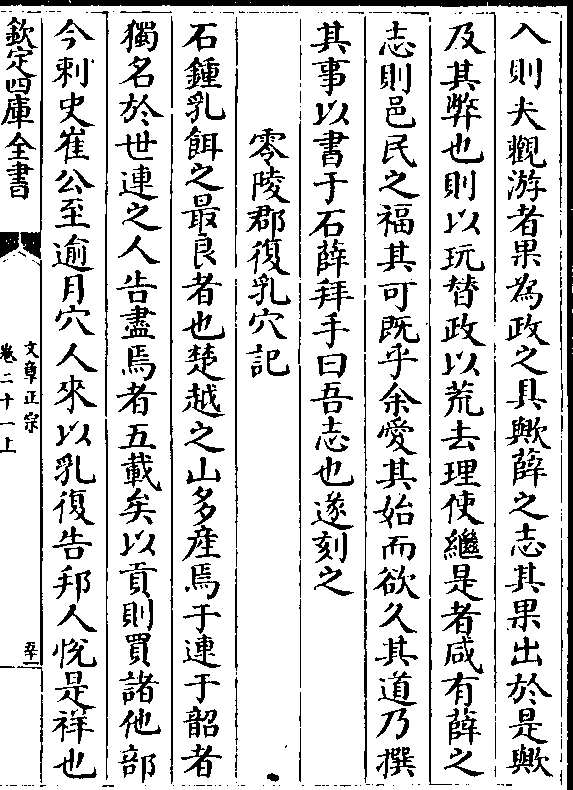 入則夫觀游者果為政之具歟薛之志其果出於是歟
及其弊也則以玩替政以荒去理使繼是者咸有薛之
志則邑民之福其可既乎余愛其始而欲久其道乃撰
其事以書于石薛拜手曰吾志也遂刻之
零陵郡復乳穴記
石鍾乳餌之最良者也楚越之山多產焉于連于韶者
獨名於世連之人告盡焉者五載矣以貢則買諸他部
今刺史崔公至逾月穴人來以乳復告邦人悅是祥也
欽定四庫全書
文章正宗
卷二十一上